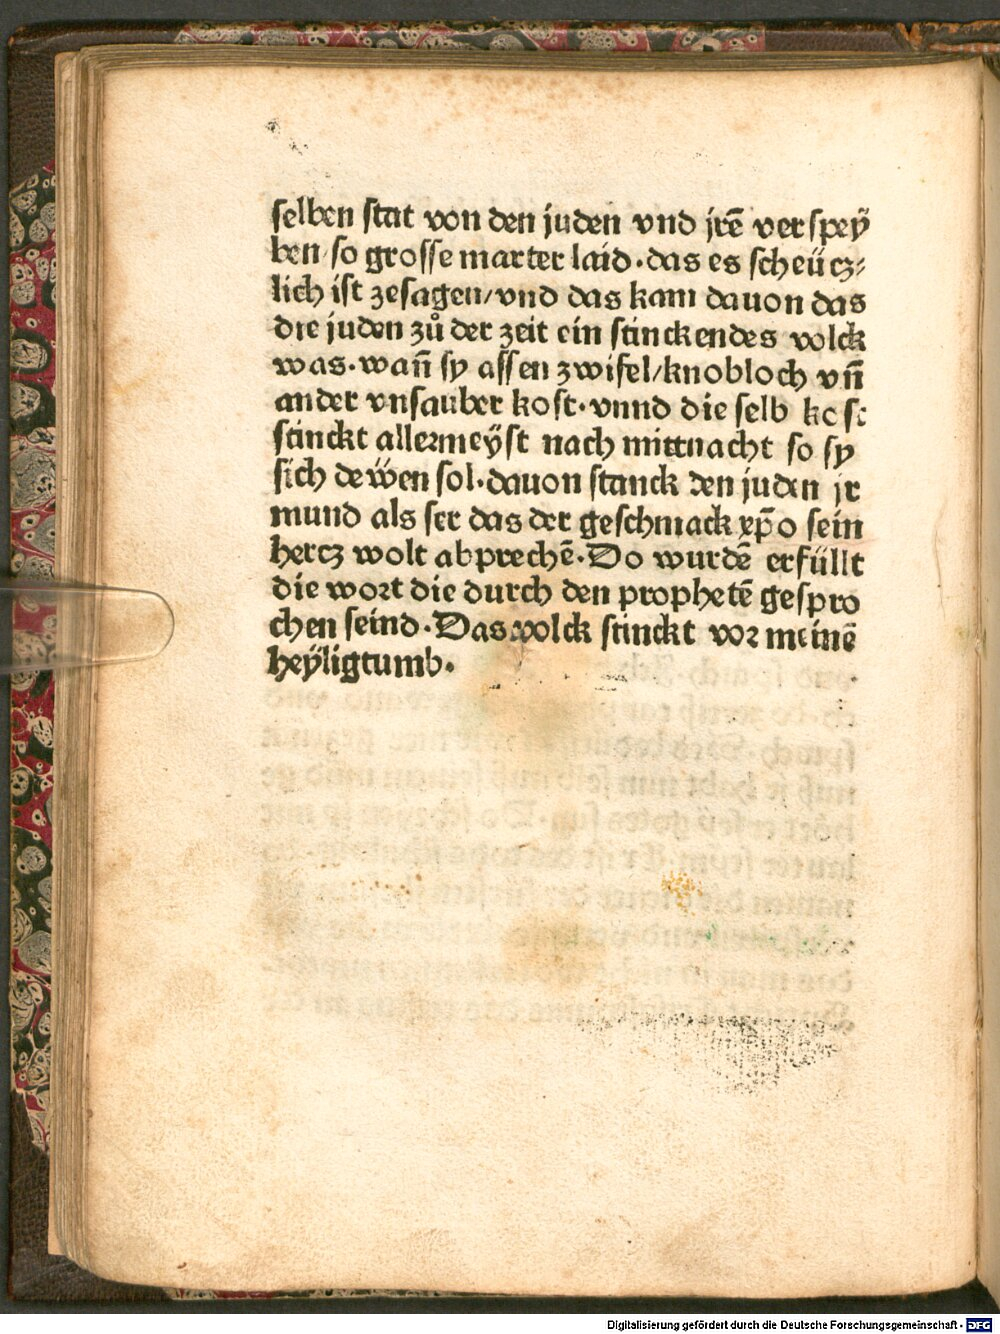 selben stat von den juden vnd jrē verspeÿ
ben so grosse marter laid·das es scheücz⸗
lich ist zesagen/vnd das kam dauon das
die juden zů der zeit ein stinckendes volck
was·wañ sy assen zwifel/knobloch vñ
ander vnsauber kost·vnnd die selb kost
stinckt allermeÿst nach mittnacht so sy
sich dewen sol·dauon stanck den juden jr
mund als ser das der geschmack xp̄o sein
hertz wolt abprechē·Do wurdē erfüllt
die wort die durch den prophetē gespro
chen seind·Das volck stinckt vor meinē
heÿligtumb·
Digitalisierung gefördert durch die Deutsche Forschungsgemeinschaft - DFG